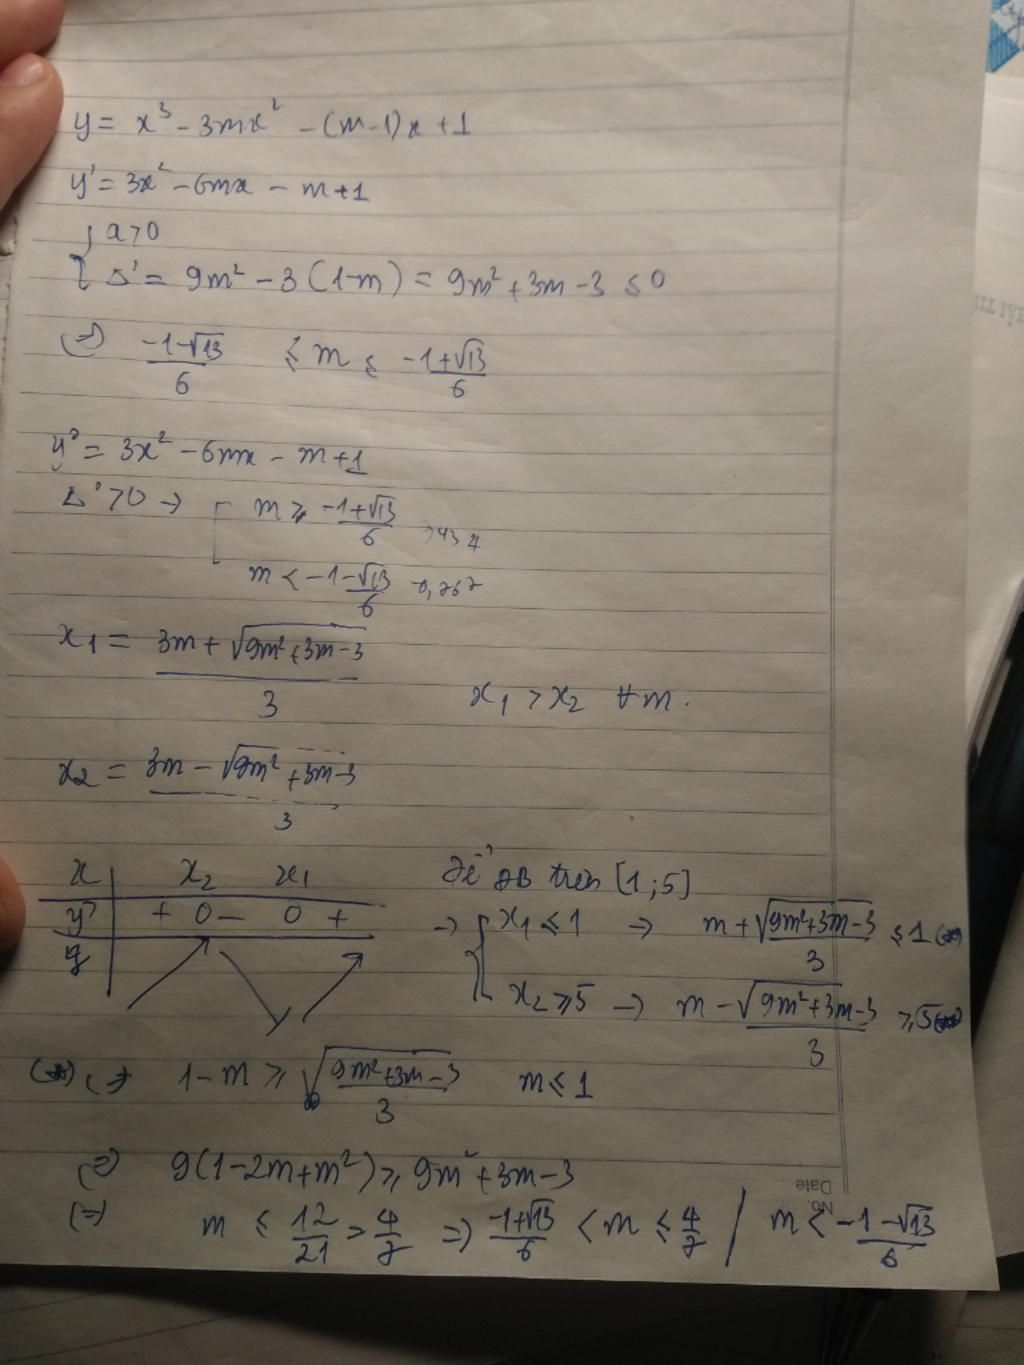 y = x³ - 3mx² - (m-1)x + 1
y' = 3x² - 6mx - m+1
{ a>0
Δ' = 9m² - 3(1-m) = 9m² + 3m - 3 ≤ 0
(=) (-1-√13)/6 ≤ m ≤ (-1+√13)/6
y' = 3x² - 6mx - m+1
Δ' > 0 → [ m ≥ (-1+√13)/6
m < (-1-√13)/6
x₁ = (3m + √(9m²+3m-3))/3
x₁ > x₂ ∀m.
x₂ = (3m - √(9m²+3m-3))/3
x | x₂ x₁
y' | + 0 - 0 +
y
Để ĐB trên [1;5]
→ { x₁ ≤ 1 → m + √(9m²+3m-3)/3 ≤ 1 (*)
x₂ ≥ 5 → m - √(9m²+3m-3)/3 ≥ 5
(*) (=) 1-m ≥ √(9m²+3m-3)/3 m ≤ 1
(=) 9(1-2m+m²) ≥ 9m²+3m-3
(=) m ≤ 12/21 = 4/7 => (-1+√13)/6 < m ≤ 4/7 / m < (-1-√13)/6
No.
Date